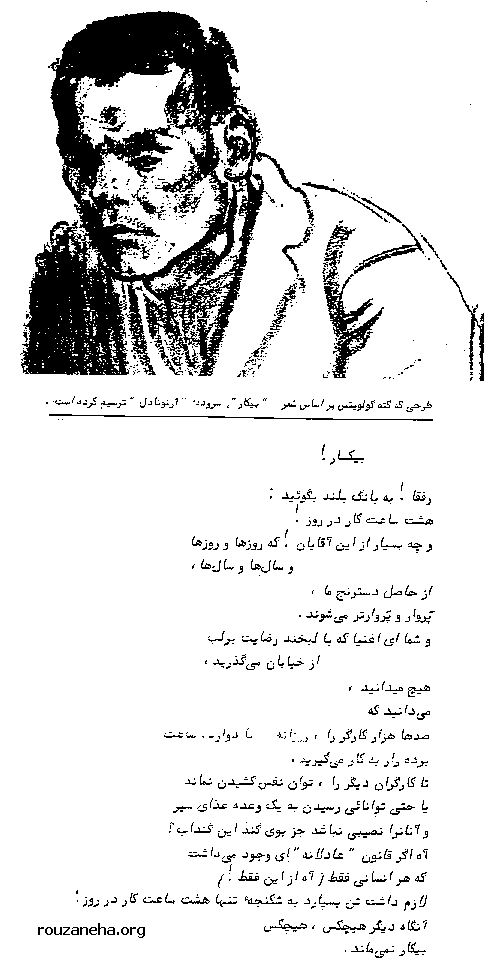 طرحی که کته کولویتس بر اساس شعر "بیکار"، سروده‌ٔ "آرنونادل" ترسیم کرده است.
بیکار!
رفقا! به بانگ بلند بگوئید:
هشت ساعت کار در روز!
و چه بسیار از این آقایان! که روزها و روزها
و سال‌ها و سال‌ها،
از حاصل دسترنج ما،
پروار و پروارتر می‌شوند.
و شما ای اغنیا که با لبخند رضایت برلب
از خیابان می‌گذرید،
هیچ میدانید،
می‌دانید که
صدها هزار کارگر را، روزانه ساعت
برده وار به کار می‌گیرید.
تا کارگران دیگر را، توان نفس کشیدن نماند
یا حتی توانائی رسیدن به یک وعده غذای سیر
و آنانرا نصیبی نباشد جز بوی گند این گنداب؟!
آه اگر قانون "عادلانه"ای وجود می‌داشت
که هر انسانی فقط (آه از این فقط!)
لازم داشت تن بسپارد به شکنجهٔ تنها هشت ساعت کار در روز!
آنگاه دیگر هیچکس، هیچکس
بیکار نمی‌ماند.
rouzaneha.org